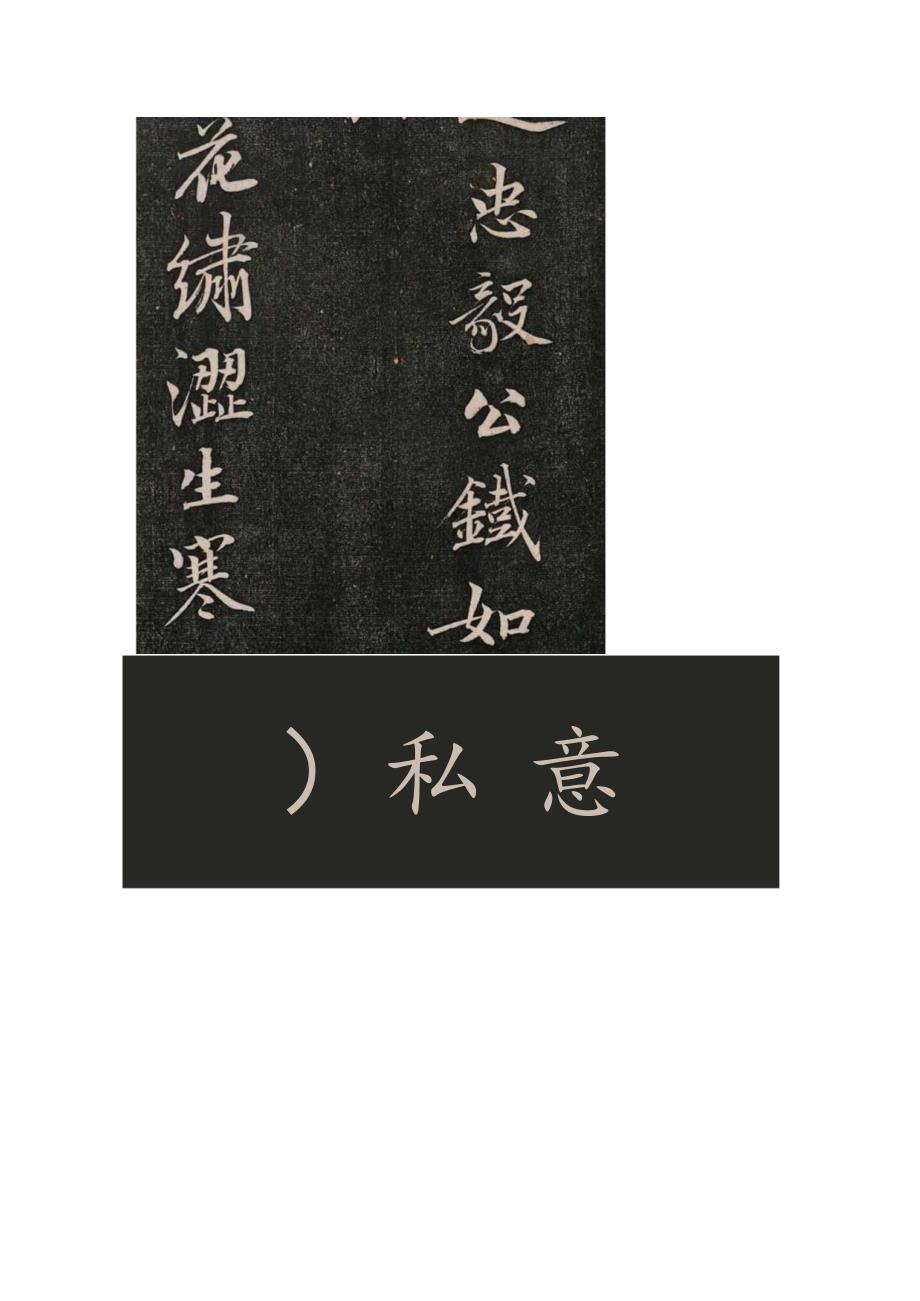 忠毅公鐵如
花繡澀生寒
意 私 )